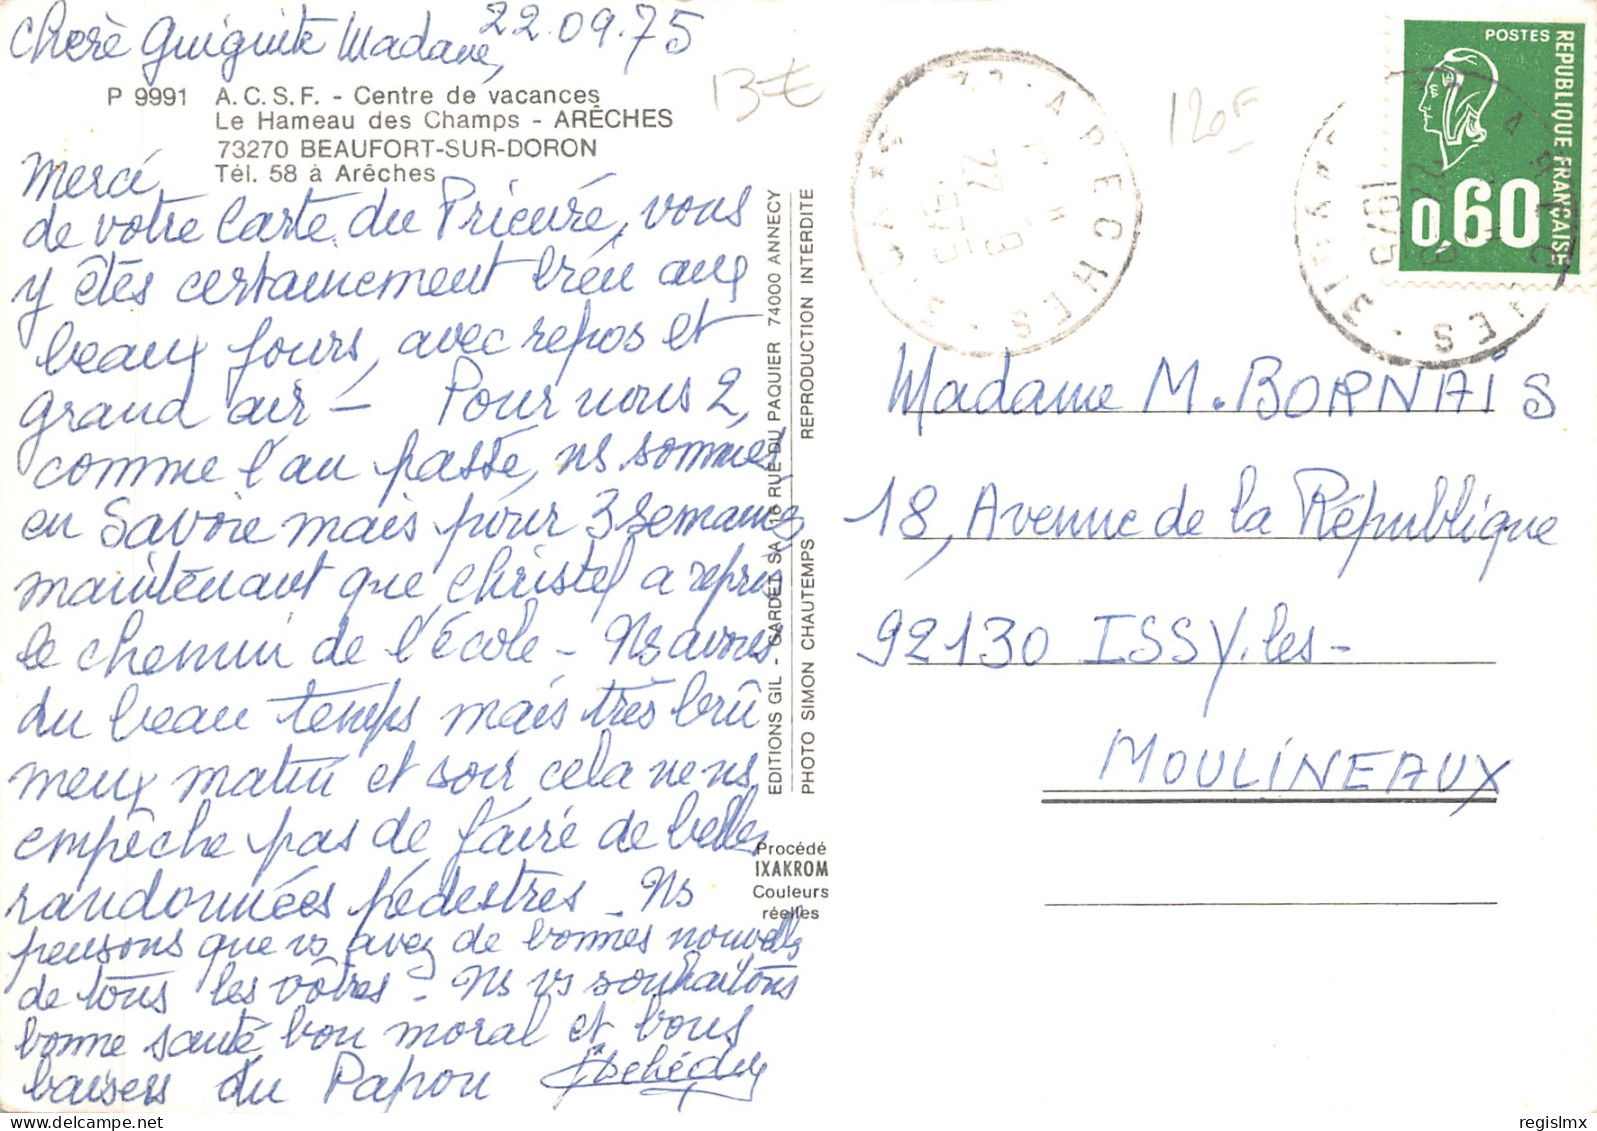 22.09.75
Chère Guiguite Madame,
P 9991 A.C.S.F. - Centre de vacances
Le Hameau des Champs - ARÊCHES
73270 BEAUFORT-SUR-DORON
Tél. 58 à Arêches
13€
120F
Merci
de votre Carte du Prieuré, vous
y êtes certainement bien aux
beaux jours, avec repos et
grand air - Pour nous 2,
comme l'an passé, ns sommes
en Savoie mais pour 3 semaines
maintenant que Christel a repris
le chemin de l'école - Ns avons
du beau temps mais très bru
meux matin et soir cela ne ns
empêche pas de faire de belles
randonnées pédestres - Ns
pensons que vs avez de bonnes nouvelles
de tous les vôtres - Ns vs souhaitons
bonne santé bon moral et bons
baisers du Papou
EDITIONS GIL - GARDET SA 16 RUE DU PAQUIER 74000 ANNECY
PHOTO SIMON CHAUTEMPS REPRODUCTION INTERDITE
Procédé
IXAKROM
Couleurs
réelles
73 - ARECHES - SAVOIE
22 - 9
1975
POSTES
REPUBLIQUE FRANÇAISE
0,60
22 - 9
1975
Madame M. BORNAIS
18, Avenue de la République
92130 ISSY.les-
MOULINEAUX
regislmx